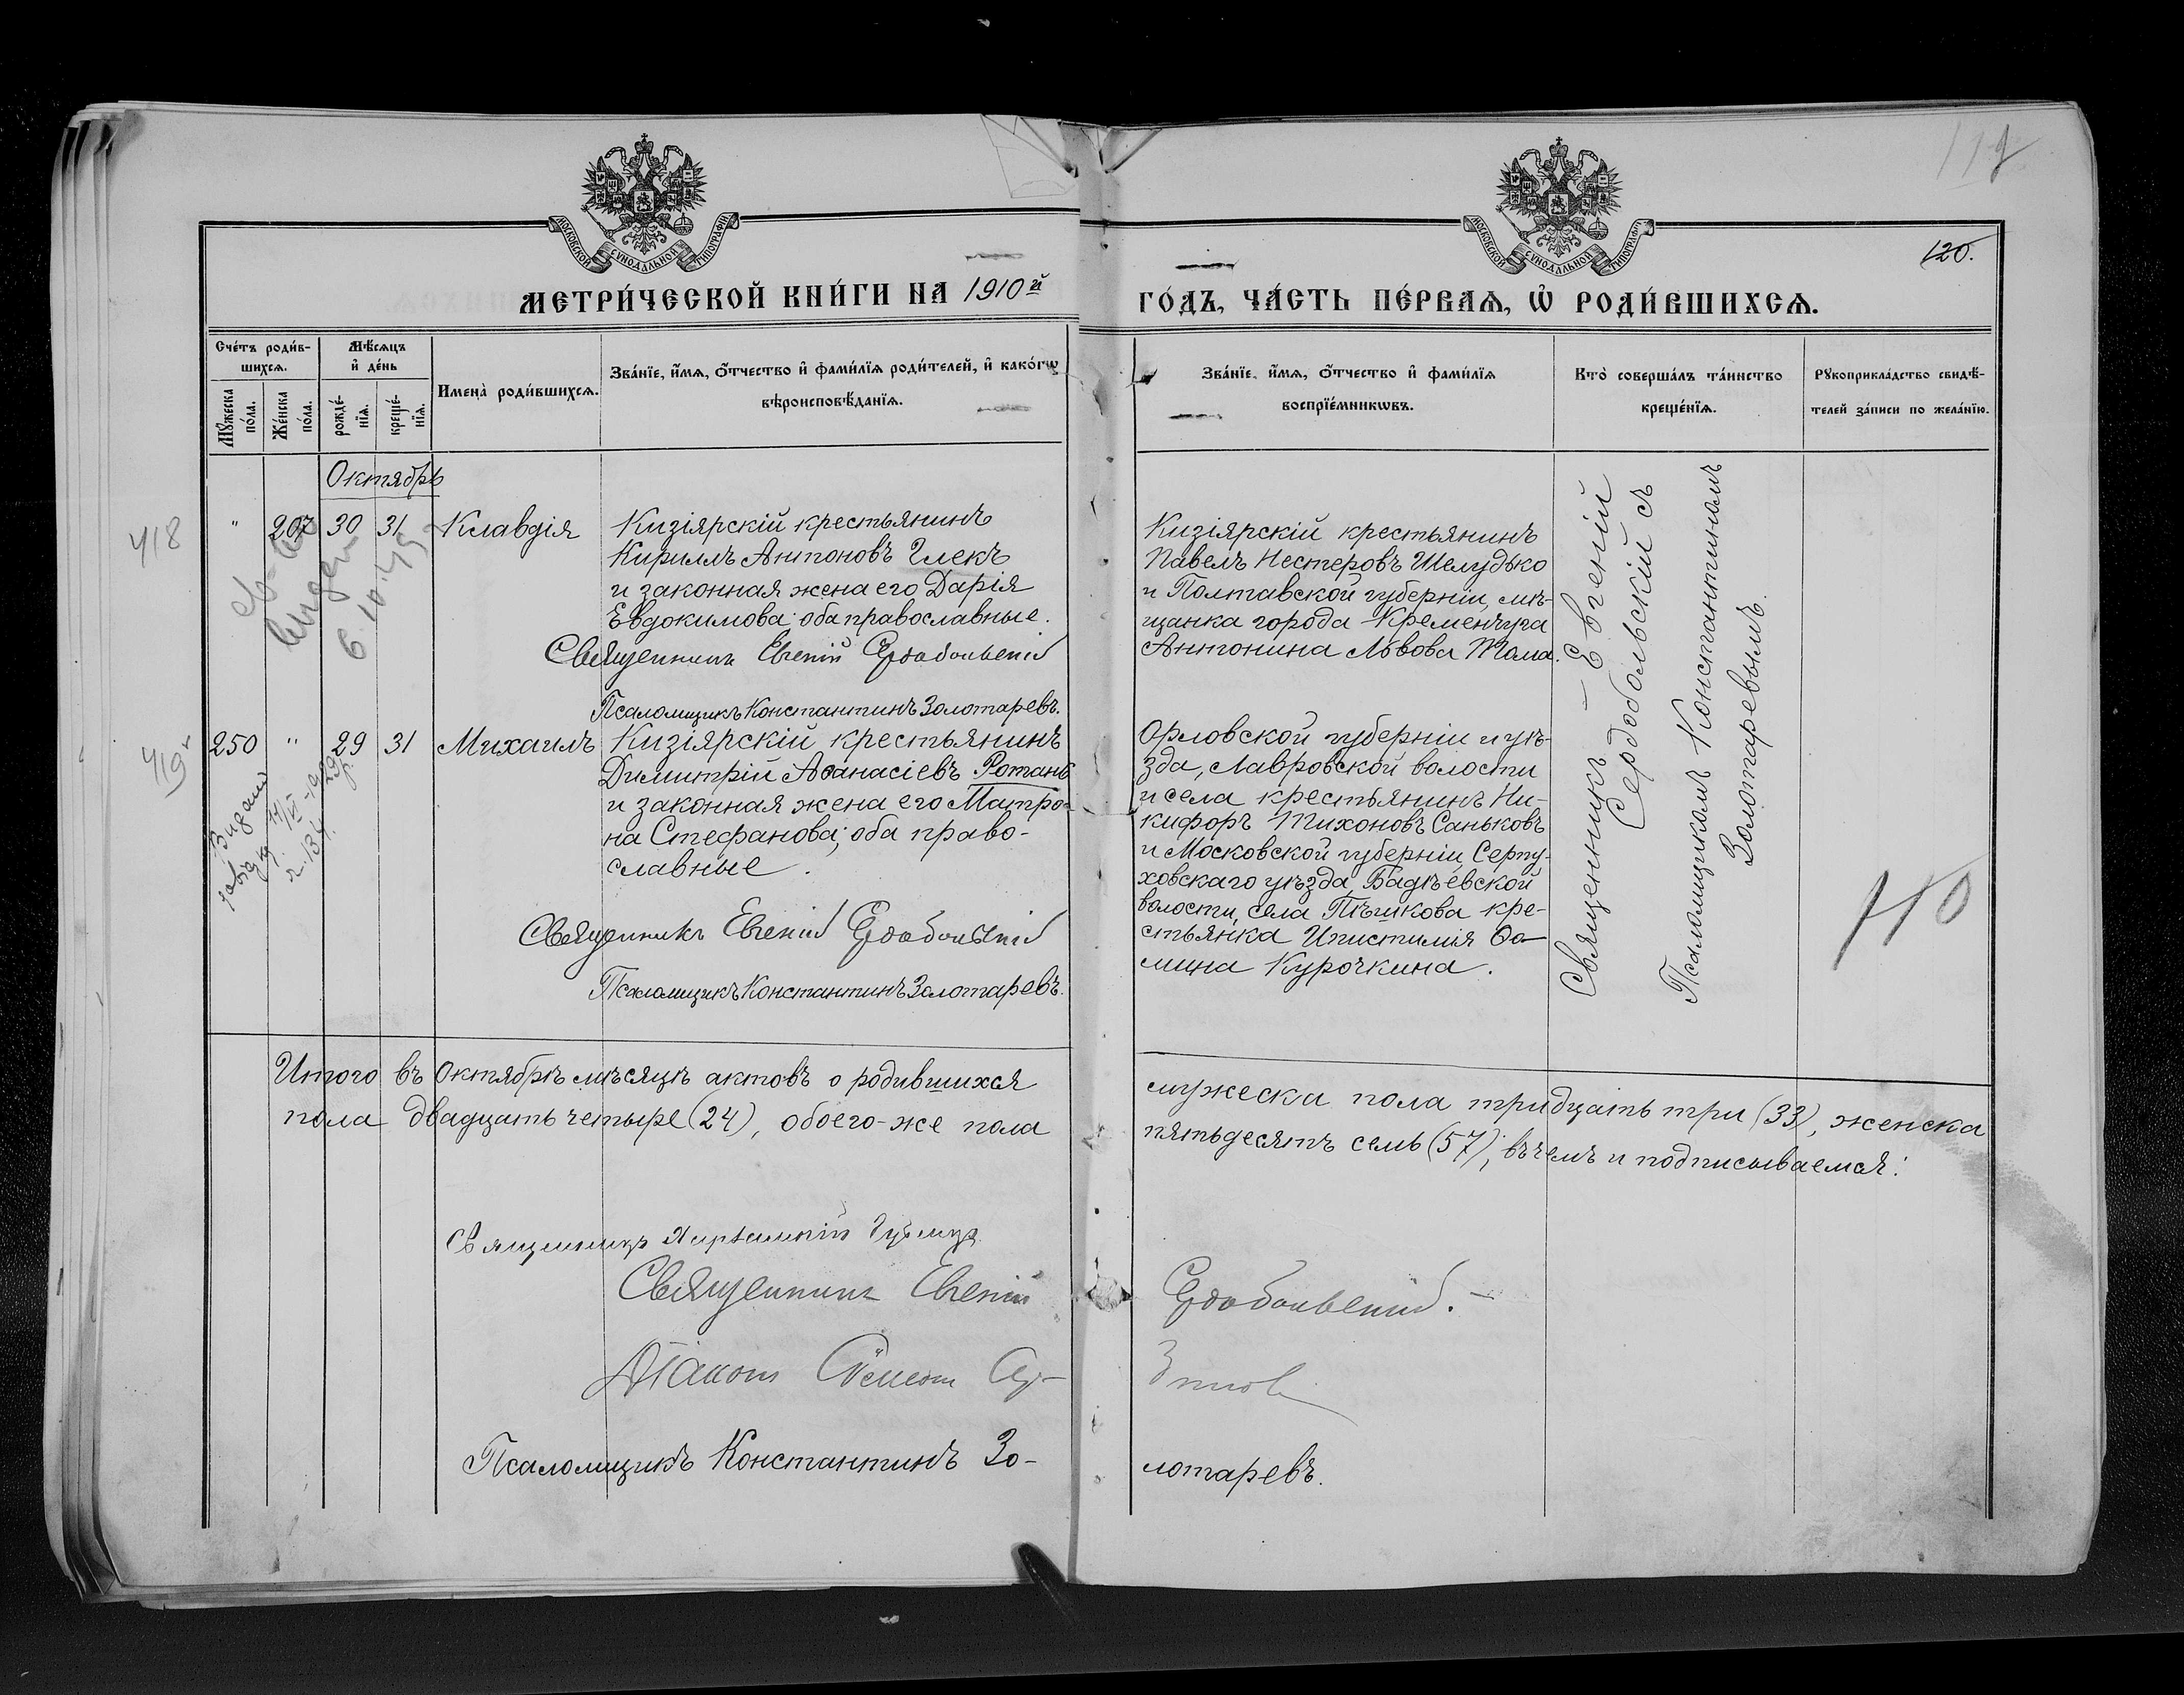 119
120.
МОСКОВСКОЙ СѴНОДАЛЬНОЙ ТИПОГРАФІИ
МОСКОВСКОЙ СѴНОДАЛЬНОЙ ТИПОГРАФІИ
МЕТРИ́ЧЕСКОЙ КНИ́ГИ НА 1910й
ГО́ДЪ, ЧА́СТЬ ПЕ́РВАѦ, Ѡ҆ РОДИ́ВШИХСѦ.
Сче́тъ роди́в-
шихсѧ.
Мꙋ́жеска по́ла.
Же́нска по́ла.
Мѣ́сѧцъ
и҆ де́нь
рожде́-
нїѧ.
креще́-
нїѧ.
Имена̀ роди́вшихсѧ.
Зва́нїе, и҆́мѧ, ѻ҆́тчество и҆ фами́лїѧ роди́телей, и҆ како́гѡ
вѣроисповѣ́данїѧ.
Зва́нїе, и҆́мѧ, ѻ҆́тчество и҆ фами́лїѧ
воспрїе́мникѡвъ.
Кто̀ соверша́лъ та́инство
креще́нїѧ.
Рꙋкоприкла́дство свидѣ́-
телей за́писи по жела́нїю.
Октябрь
418
" 207 30 31 Клавдія
Кизіярскій крестьянинъ
Кириллъ Антоновъ Глекъ
и законная жена его Дарія
Евдокимова; оба православные.
Священникъ Евгеній Сердобольскій
Псаломщикъ Константинъ Золотаревъ.
Кизіярскій крестьянинъ
Павелъ Нестеровъ Шелудько
и Полтавской губерніи, мѣ-
щанка города Кременчуга
Антонина Львова Тома.
419
250 " 29 31 Михаилъ
Кизіярскій крестьянинъ
Димитрій Аѳанасіевъ Ротань
и законная жена его Матро-
на Стефанова; оба право-
славные.
Священникъ Евгеній Сердобольскій
Псаломщикъ Константинъ Золотаревъ.
Орловской губерніи и уѣ-
зда, Лавровской волости
и села крестьянинъ Ни-
кифоръ Тихоновъ Саньковъ
и Московской губерніи, Серпу-
ховскаго уѣзда, Бадѣевской
волости, села Пѣшкова кре-
стьянка Ипистимія Ѳо-
мина Курочкина.
Священникъ – Евгеній
Сердобольскій съ
Псаломщикомъ Константиномъ
Золотаревымъ.
Итого въ Октябрѣ мѣсяцѣ актовъ о родившихся
мужеска пола тридцать три (33), женска
пола двадцать четыре (24), обоего-же пола
пятьдесятъ семь (57), въ чемъ и подписываемся:
Священникъ
Священникъ Евгеній
Сердобольскій. –
Діаконъ
Псаломщикъ Константинъ Зо-
лотаревъ.